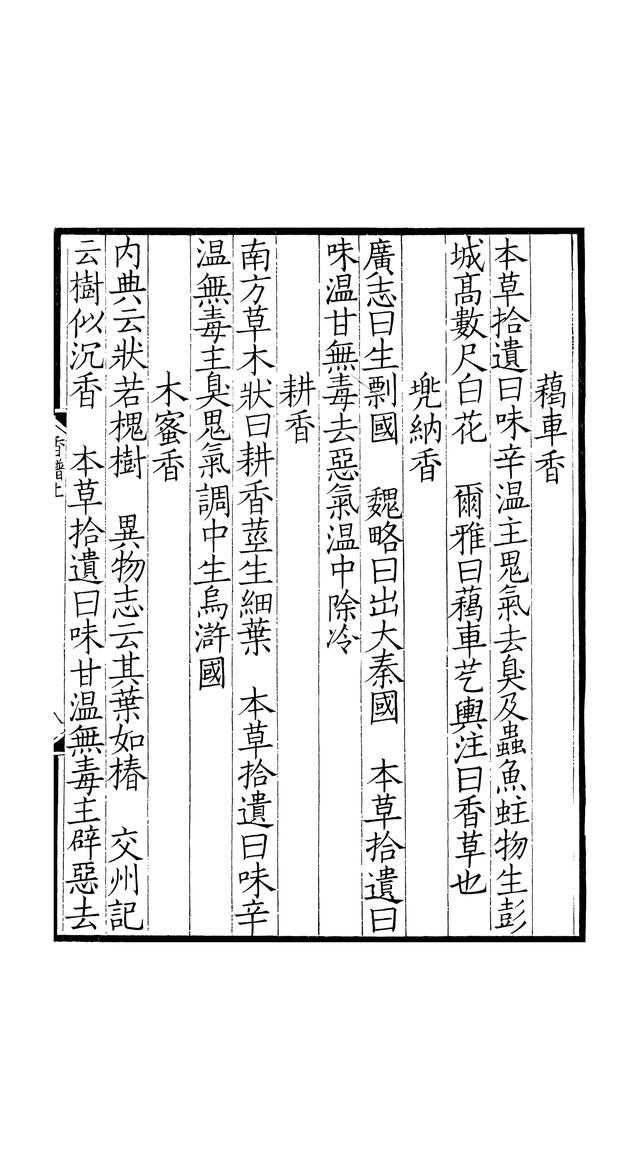 藒車香
本草拾遺曰味辛温主鬼氣去臭及蟲魚蛀物生彭
城髙數尺白花　爾雅曰藒車芞輿注曰香草也
兠納香
廣志曰生剽國　魏略曰出大秦國　本草拾遺曰
味温甘無毒去惡氣温中除冷
耕香
南方草木狀曰耕香莖生細葉　本草拾遺曰味辛
温無毒主臭鬼氣調中生烏滸國
木蜜香
内典云狀若槐樹　異物志云其葉如椿　交州記
云樹似沉香　本草拾遺曰味甘温無毒主辟惡去
香譜上